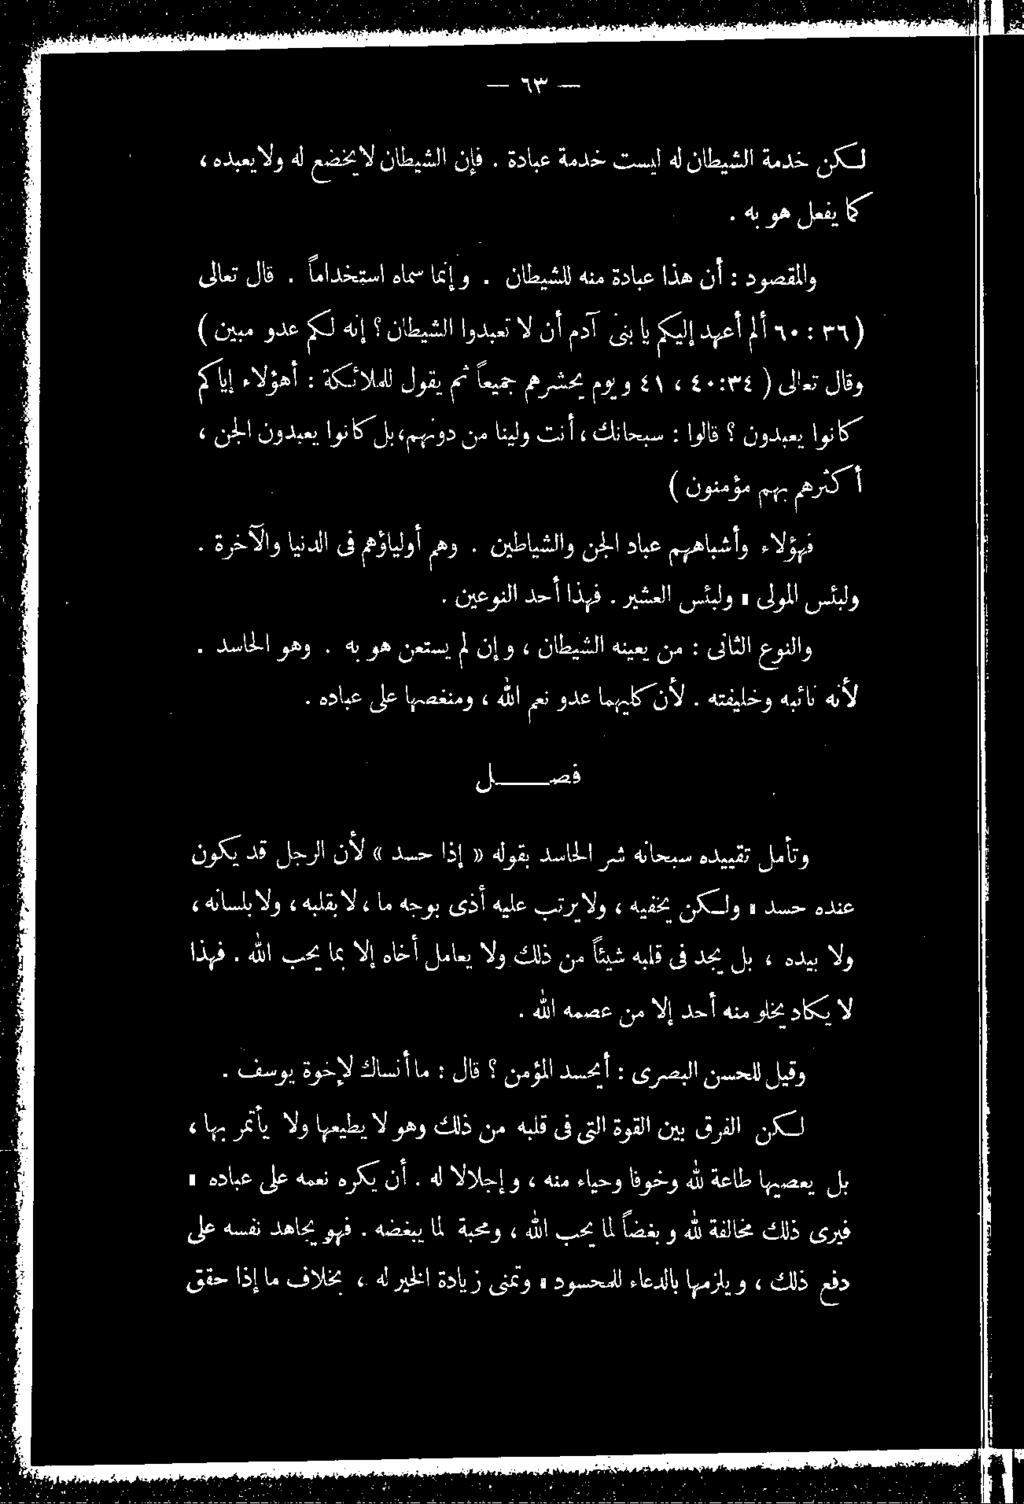 — ٦٣ —
لكن خدمة الشيطان له ليست خدمة عبادة . فإن الشيطان لا يخضع له ولا يعبده ،
كما يفعل هو به .
والمقصود : أن هذا عبادة منه للشيطان . وإنما سماه استخداماً . قال تعالى
( ٣٦ : ٦٠ ألم أعهد إليكم يا بنى آدم أن لا تعبدوا الشيطان ؟ إنه لكم عدو مبين )
وقال تعالى ( ٣٤:٤٠ ، ٤١ ويوم يحشرهم جميعاً ثم يقول للملائكة : أهؤلاء إياكم
كانوا يعبدون ؟ قالوا : سبحانك ، أنت ولينا من دونهم ، بل كانوا يعبدون الجن ،
أكثرهم بهم مؤمنون )
فهؤلاء وأشباههم عباد الجن والشياطين . وهم أولياؤهم فى الدنيا والآخرة .
ولبئس المولى ، ولبئس العشير . فهذا أحد النوعين .
والنوع الثانى : من يعينه الشيطان ، وإن لم يستعن هو به . وهو الحاسد .
لأنه نائبه وخليفته . لأن كليهما عدو نعم الله ، ومنغصها على عباده .
فصــل
وتأمل تقييده سبحانه شر الحاسد بقوله « إذا حسد » لأن الرجل قد يكون
عنده حسد ، ولكن يخفيه ، ولا يرتب عليه أذى بوجه ما ، لا بقلبه ، ولا بلسانه ،
ولا بيده ، بل يجد فى قلبه شيئاً من ذلك ولا يعامل أخاه إلا بما يحب الله . فهذا
لا يكاد يخلو منه أحد إلا من عصمه الله .
وقيل للحسن البصرى : أيحسد المؤمن ؟ قال : ما أنساك لإخوة يوسف .
لكن الفرق بين القوة التى فى قلبه من ذلك وهو لا يطيعها ولا يأتمر بها ،
بل يعصيها طاعة لله وخوفا وحياء منه ، وإجلالا له . أن يكره نعمه على عباده ،
فيرى ذلك مخالفة لله وبغضاً لما يحب الله ، ومحبة لما يبغضه . فهو يجاهد نفسه على
دفع ذلك ، ويلزمها بالدعاء للمحسود ، وتمنى زيادة الخير له ، بخلاف ما إذا حقق